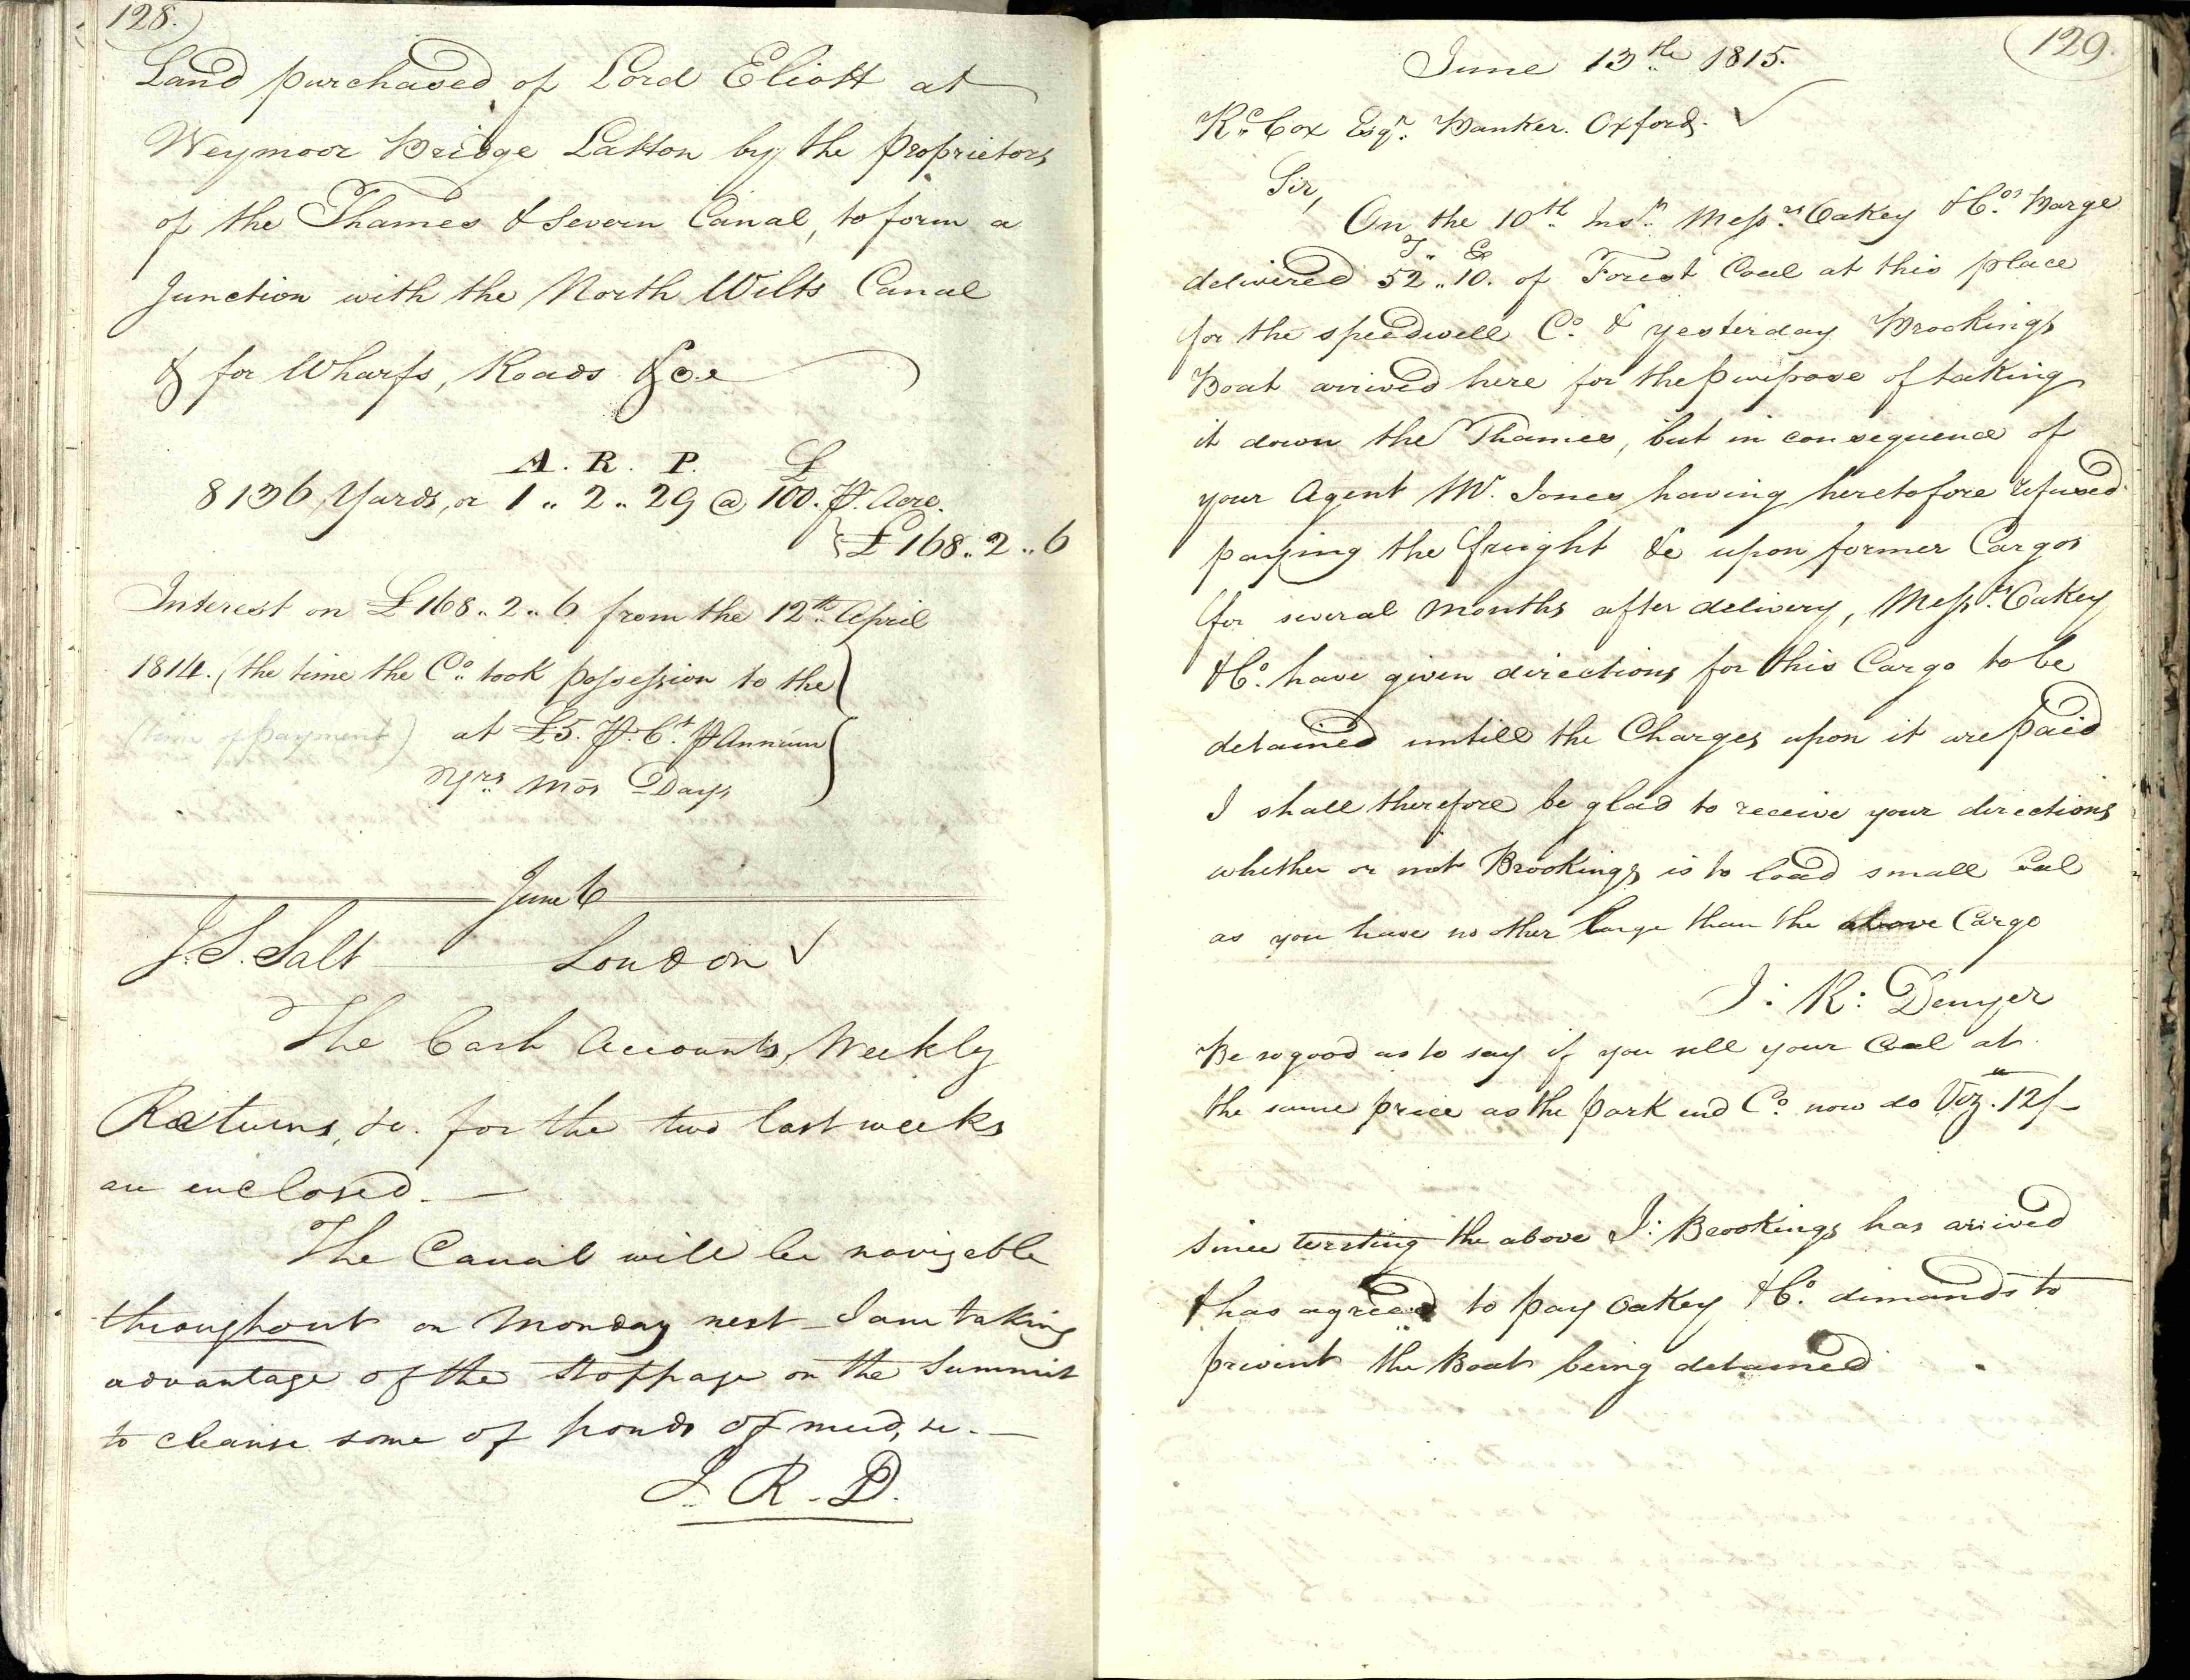 128.
Land purchased of Lord Eliott at
Weymoor Bridge Latton by the Proprietors
of the Thames & Severn Canal, to form a
Junction with the North Wilts Canal
& for Wharfs, Roads &c.
A. R. P. £
8136 Yards, or 1 .. 2 .. 29 @ 100. Pr. Acre.
£168 .. 2 .. 6
Interest on £168 .. 2 .. 6 from the 12th. April
1814. (the time the Co. took possession to the
(time of payment) at £5. Pr. Ct. Pr Annum
yrs. mos Days
June 6
J. S. Salt London ✓
The Cash Accounts, Weekly
Returns, &c. for the two last weeks
are enclosed. —
The Canal will be navigable
throughout on Monday next — I am taking
advantage of the stoppage on the Summit
to cleanse some of ponds of mud, &c. —
J. R. D.
129.
June 13th. 1815.
Rd. Cox Esqr. Banker. Oxford. ✓
Sir,
On the 10th. Inst. Messrs. Oakey & Co.s Barge
T. C.
delivered 52 .. 10. of Forest Coal at this place
for the speedwell Co. & yesterday Brookings
Boat arrived here for the Purpose of taking
it down the Thames, but in consequence of
your Agent Mr. Jones having heretofore refused
paying the freight &c upon former Cargos
for several months after delivery, Messrs. Oakey
& Co. have given directions for this Cargo to be
detained untill the Charges upon it are Paid
I shall therefore be glad to receive your directions
whether or not Brookings is to load small Coal
as you have no other large than the above Cargo
J: R: Denyer
Be so good as to say if you sell your Coal at
the same price as the Park end Co. now do Viz. 12/-
Since writing the above J: Brookings has arrived
& has agreed to pay Oakey & Co. demands to
prevent the Boat being detained